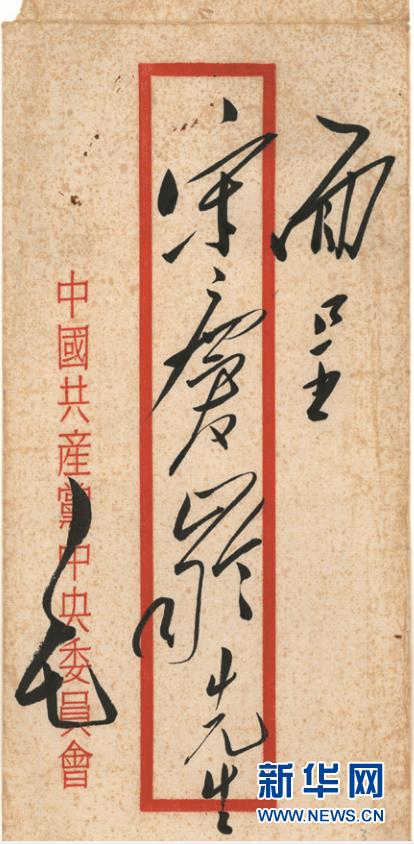 面呈
宋慶齡先生
中國共産黨中央委員會
毛
新华网
WWW.NEWS.CN
3